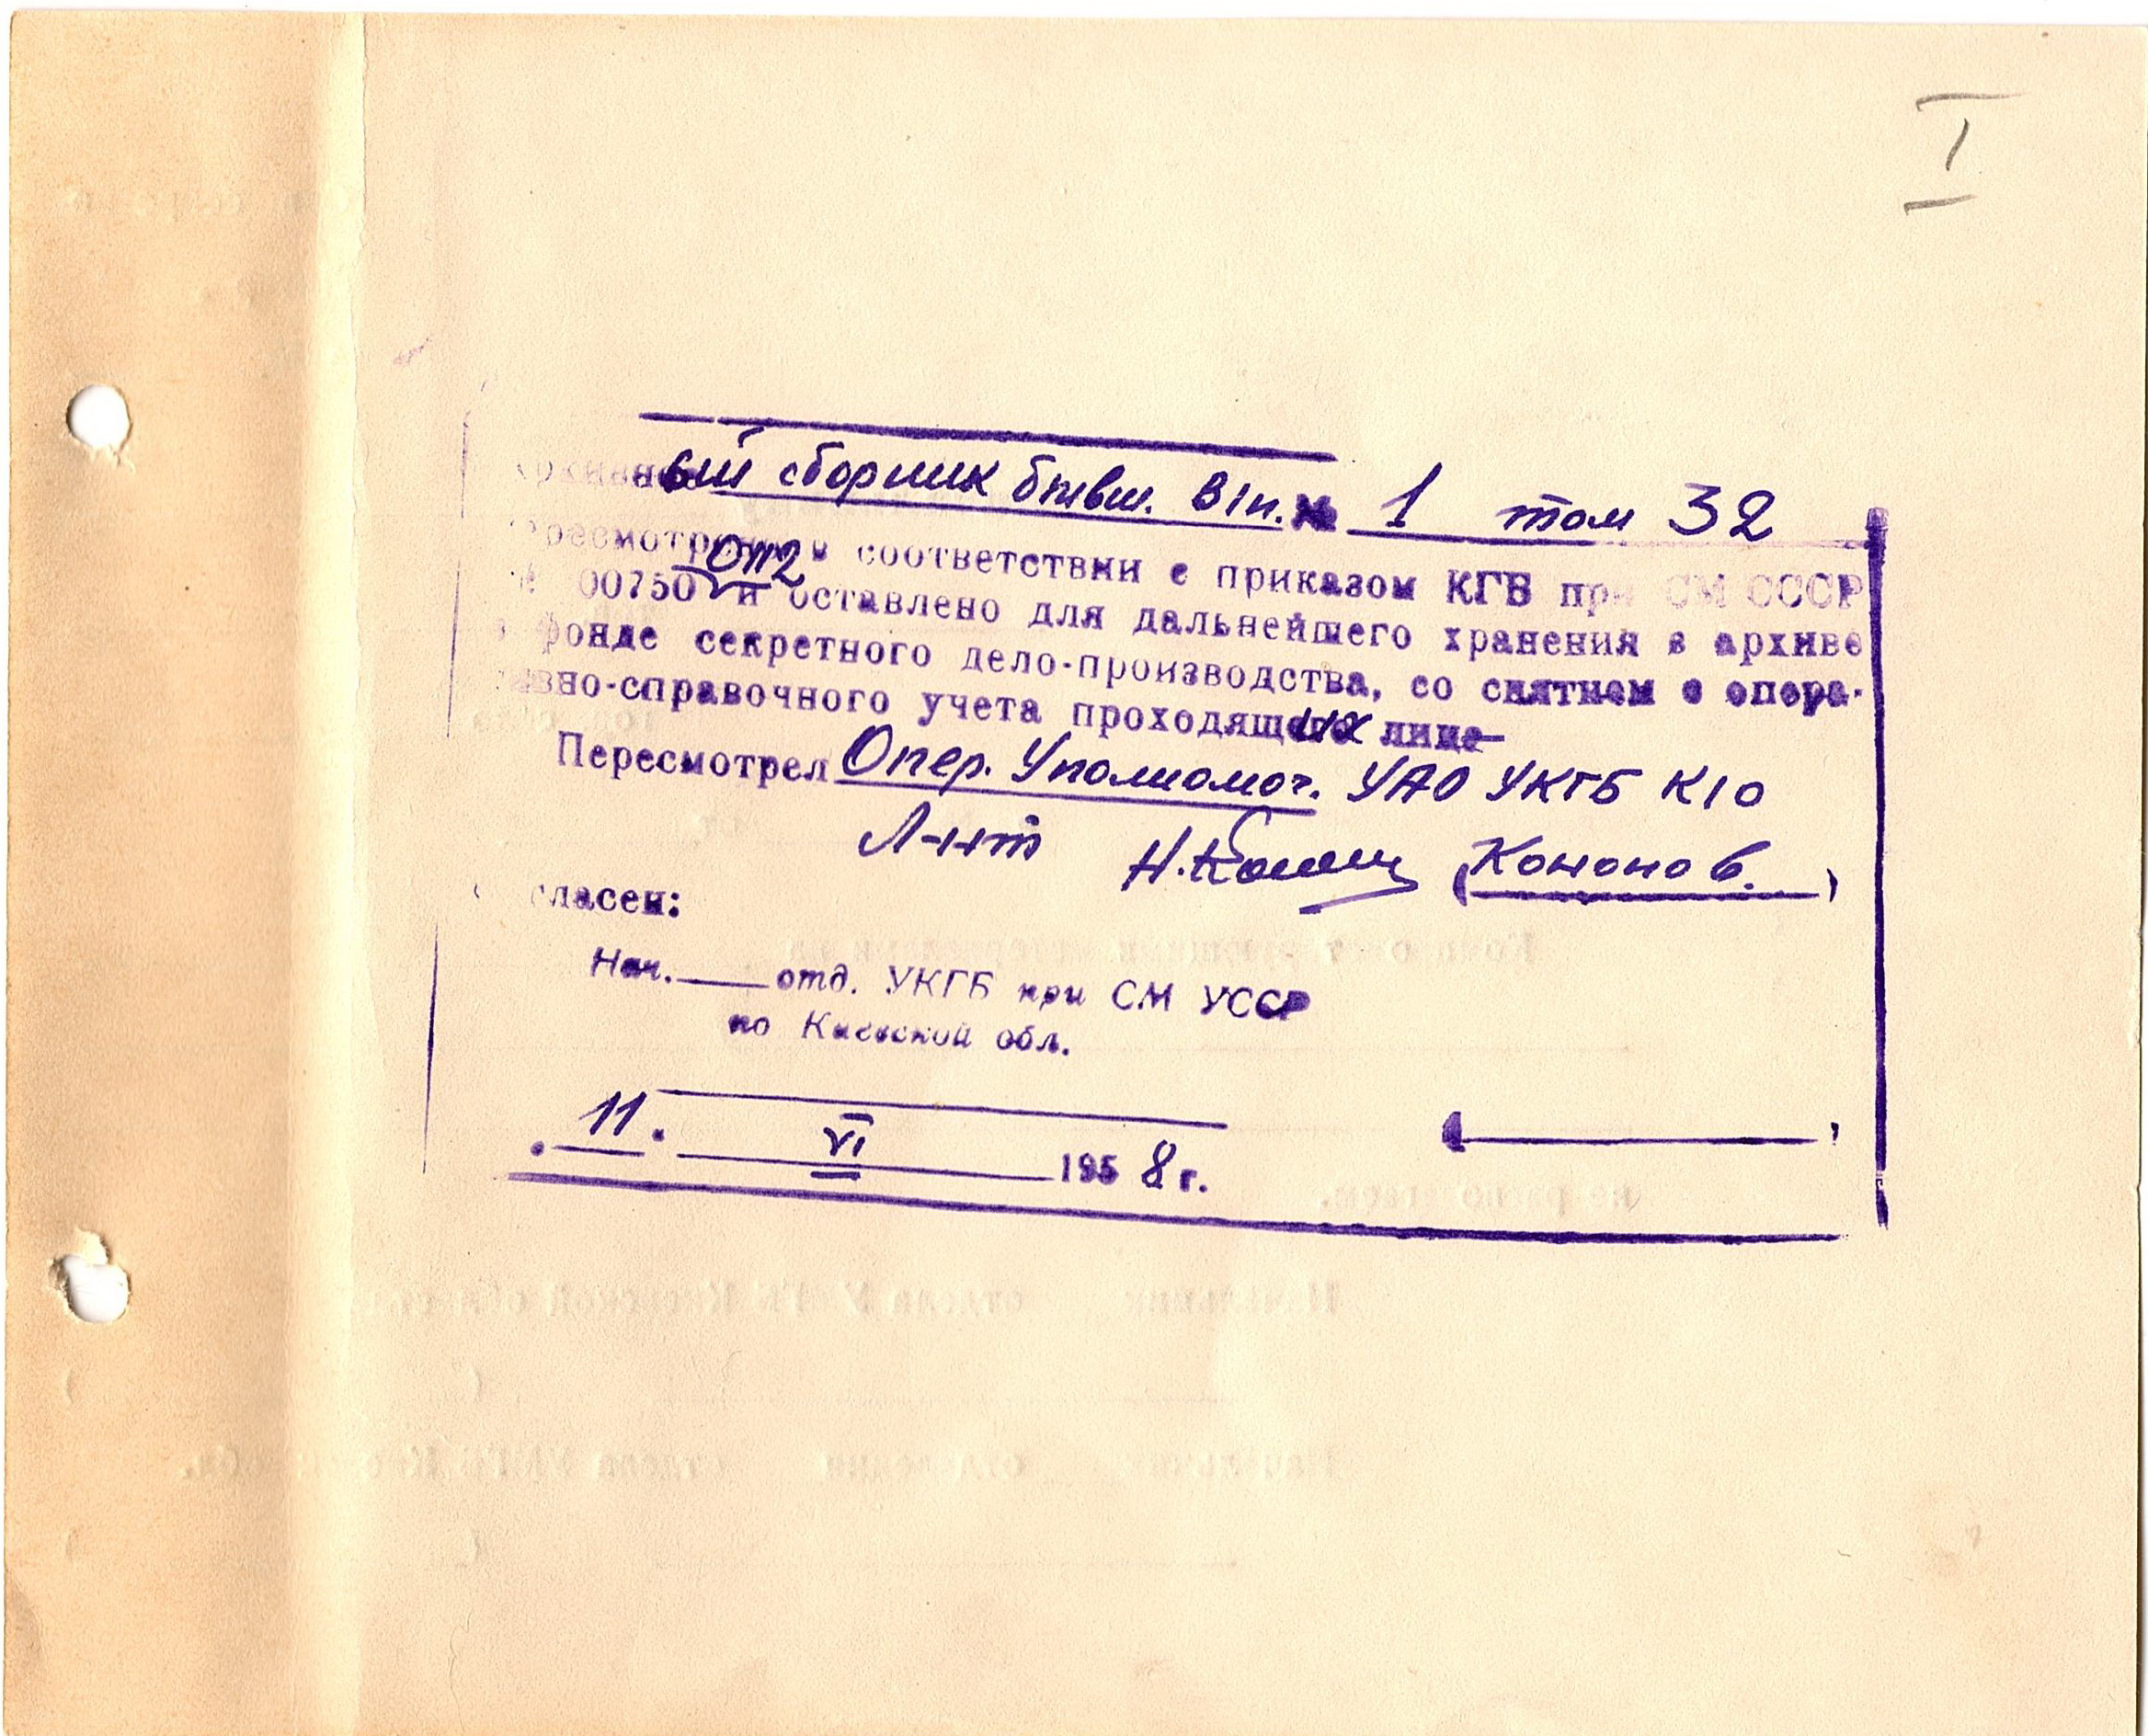 I
ый сборник бывш. В/п. № 1 том 32
в соответствии с приказом КГБ при СМ СССР
00750 и оставлено для дальнейшего хранения в архиве
фонде секретного дело-производства, со снятием с опера-
вно-справочного учета проходящих лиц
Пересмотрел Опер. Уполномоч. УАО УКГБ К/о
Л-нт (Кононов.)
гласен:
Нач. отд. УКГБ при СМ УССР
по Киевской обл.
„11" VI 1958 г.